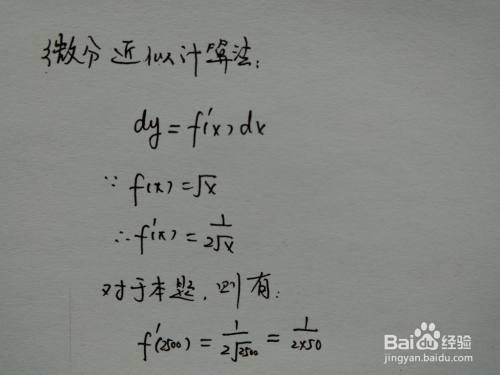 微分近似计算法:
dy=f'(x)dx
∵ f(x)=√x
∴ f'(x)=1/(2√x)
对于本题,则有:
f'(2500)=1/(2√2500)=1/(2×50)
Baidu经验
jingyan.baidu.com